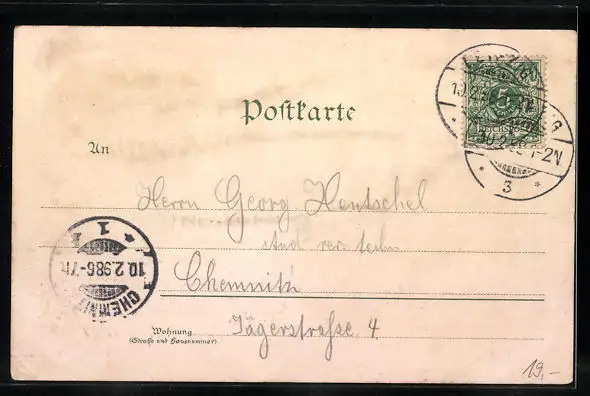 Postkarte
LEIPZIG
10.2.98
1-2N
* 3 *
5
REICHSPOST
An
Herrn Georg Hentschel
stud rer techn
Chemnitz
Wohnung
(Straße und Hausnummer)
Jägerstraße 4
CHEMNITZ
10.2.98 6-7N
* 1 *
19,-